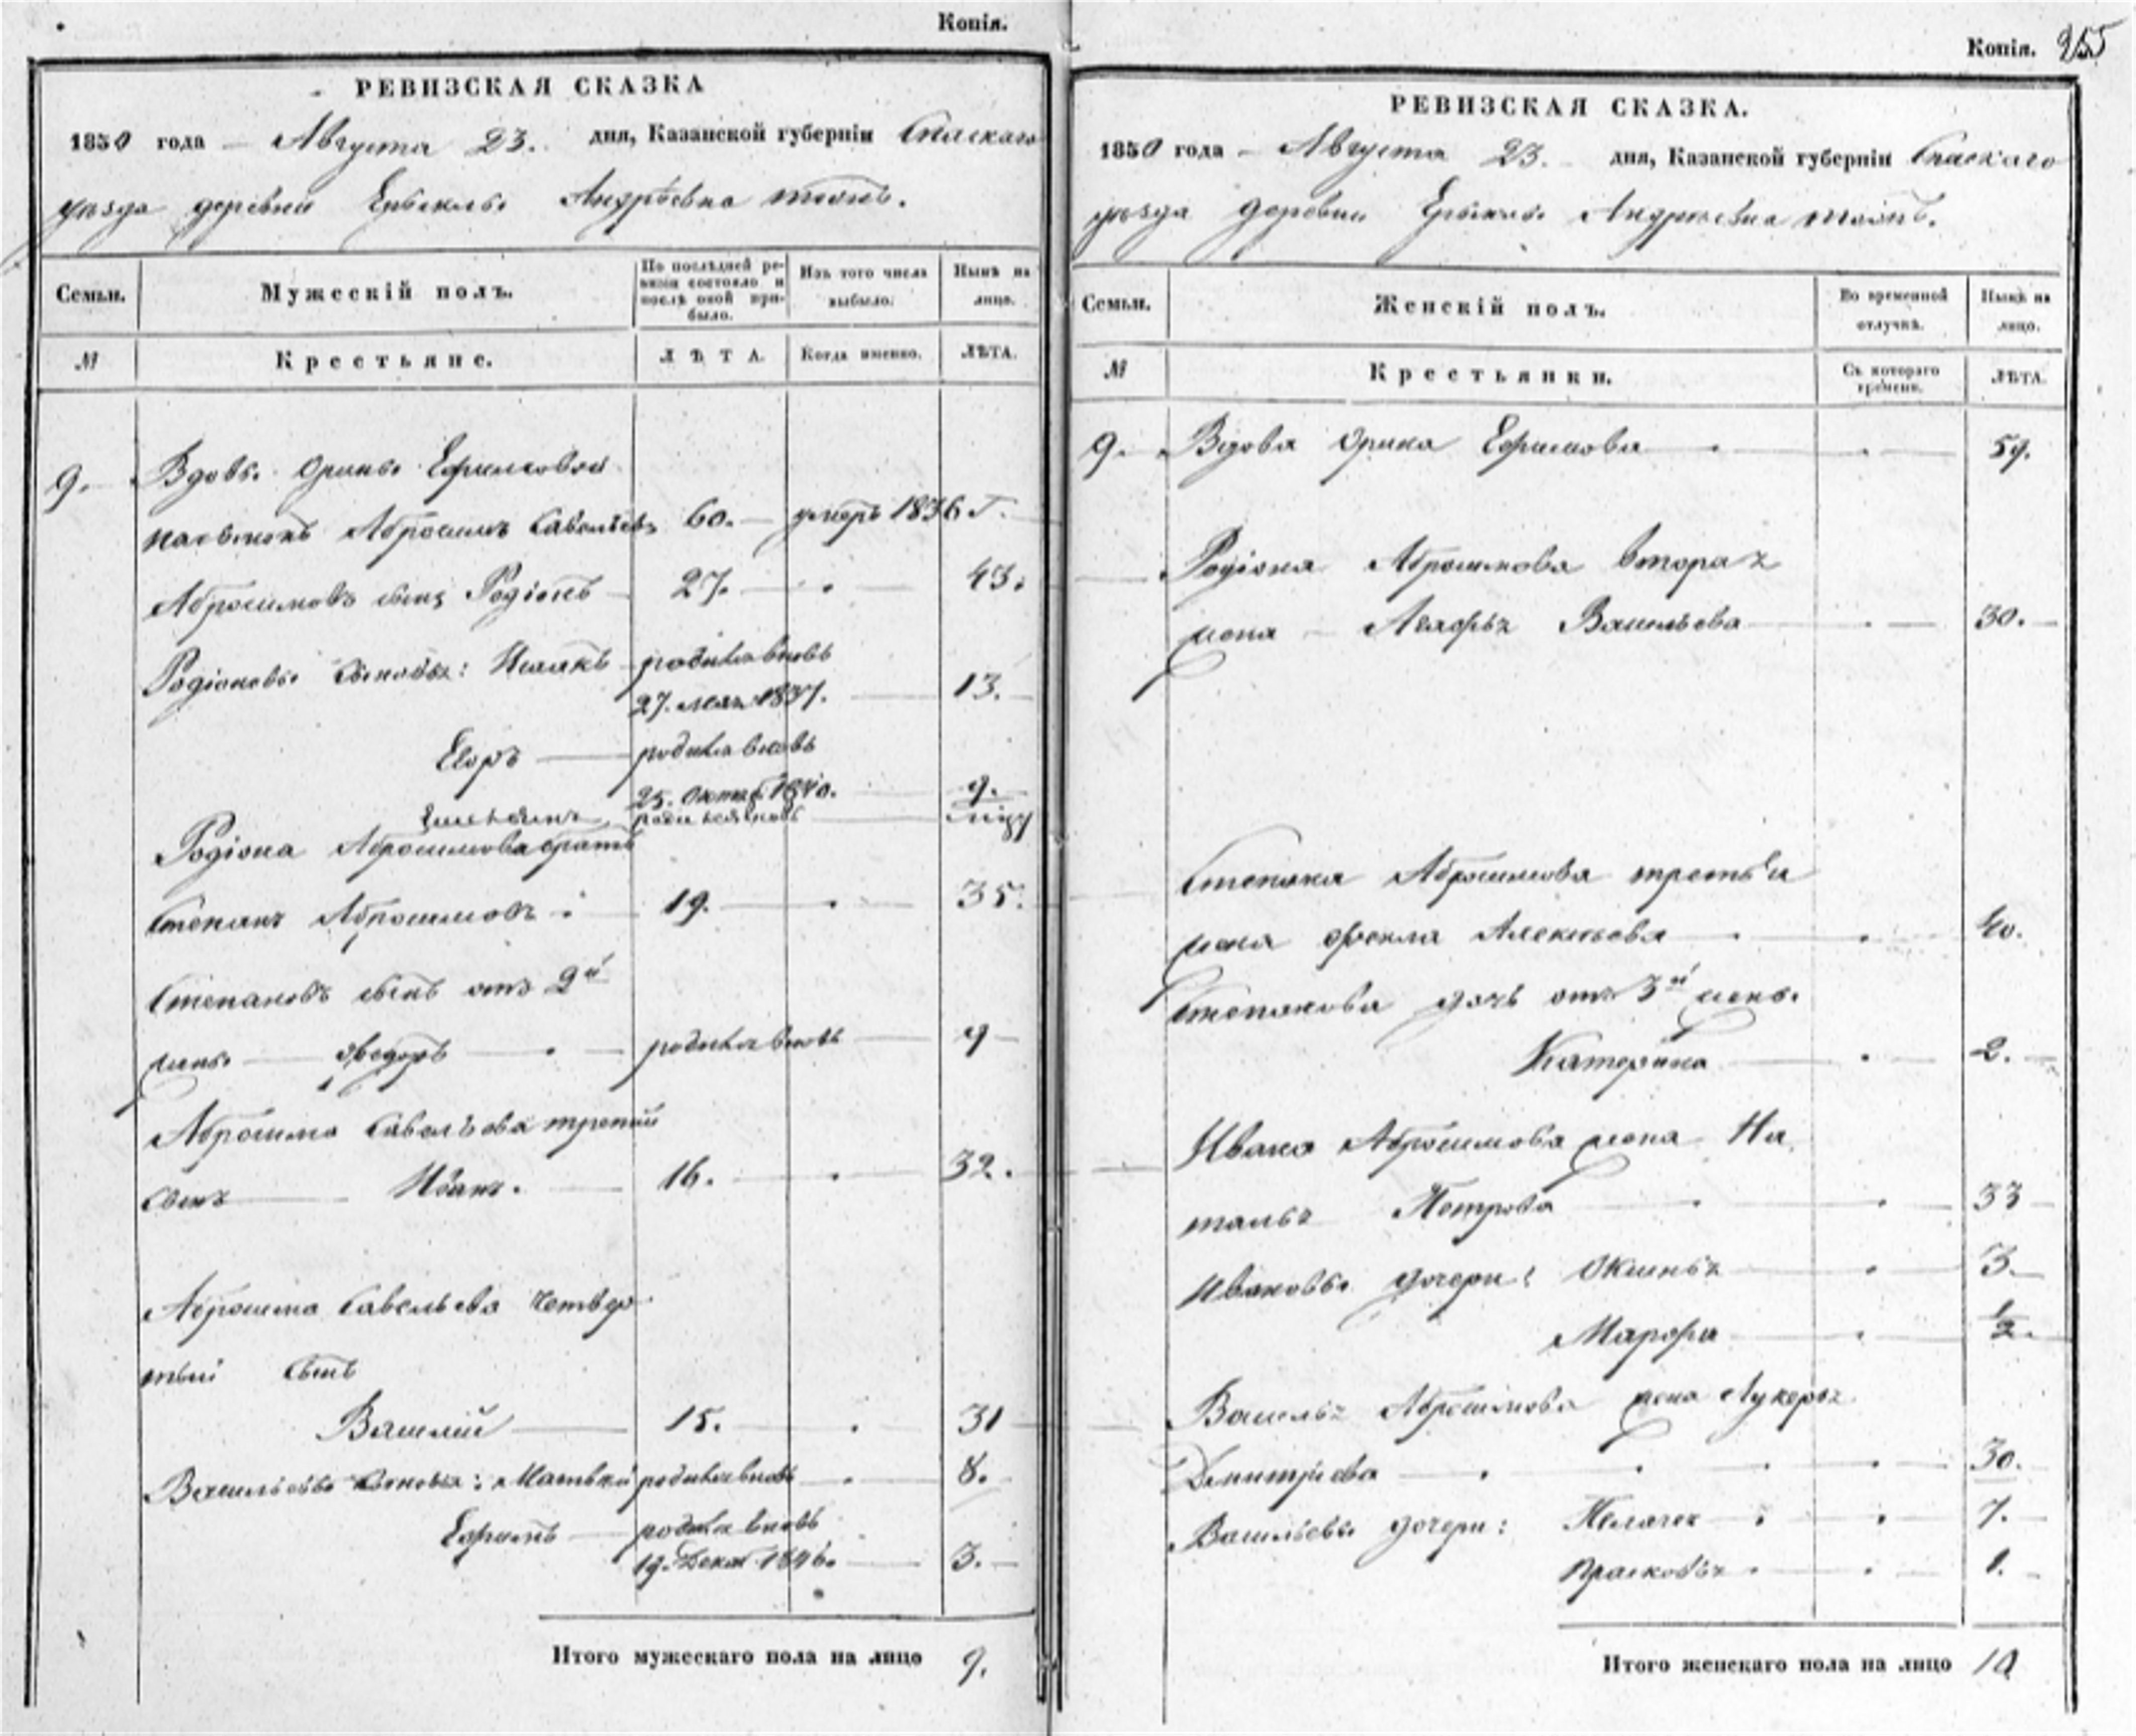 Копія.
РЕВИЗСКАЯ СКАЗКА
1850 года Августа 23. дня, Казанской губерніи Спаскаго
уѣзда деревни Андрѣевка тожъ.
Семьи. Мужескій полъ. По послѣдней ре-
визіи состояло и
послѣ оной при-
было. Изъ того числа
выбыло. Нынѣ на
лице.
№ Крестьяне. ЛѢТА. Когда именно. ЛѢТА.
9. Вдовы Орины Ефимовой
Абросимъ Савельевъ 60. умеръ 1836 г.
Абросимовъ сынъ Родіонъ 27. 43.
Родіоновы сыновья: Исаакъ родился вновь
27. мая 1837. 13.
Егоръ родился вновь
25. Октяб. 1840. 9.
родился вновь
Родіона Абросимова братъ
Степанъ Абросимовъ 19. 35.
Степановъ сынъ отъ 2й
жены Ѳедоръ родился вновь 9
Абросима Савельева третій
сынъ Иванъ. 16. 32.
Абросима Савельева четвер
тый сынъ
Василій 15. 31
Васильевы сыновья: Матвей родился вновь 8.
Ефимъ родился вновь
19. Декаб. 1846. 3.
Итого мужескаго пола на лицо 9.
Копія. 255
РЕВИЗСКАЯ СКАЗКА.
1850 года Августа 23. дня, Казанской губерніи Спаскаго
уѣзда деревни Андрѣевка тожъ.
Семьи. Женскій полъ. Во временной
отлучкѣ. Нынѣ на
лицо.
№ Крестьянки. Съ котораго
времени. ЛѢТА.
9. Вдова Орина Ефимова 59.
Родіона Абросимова вторая
жена Агафья Васильева 30.
Степана Абросимова третья
жена Ѳекла Алексѣева 40.
Степанова дочь отъ 3й жены
Катерина 2.
Ивана Абросимова жена На
талья Петрова 33
Ивановы дочери: Оксинья 3.
Марфа 1/2.
Василья Абросимова жена Лукерья
Дмитріева 30.
Васильевы дочери: Пелагея 7.
Прасковья 1.
Итого женскаго пола на лицо 10